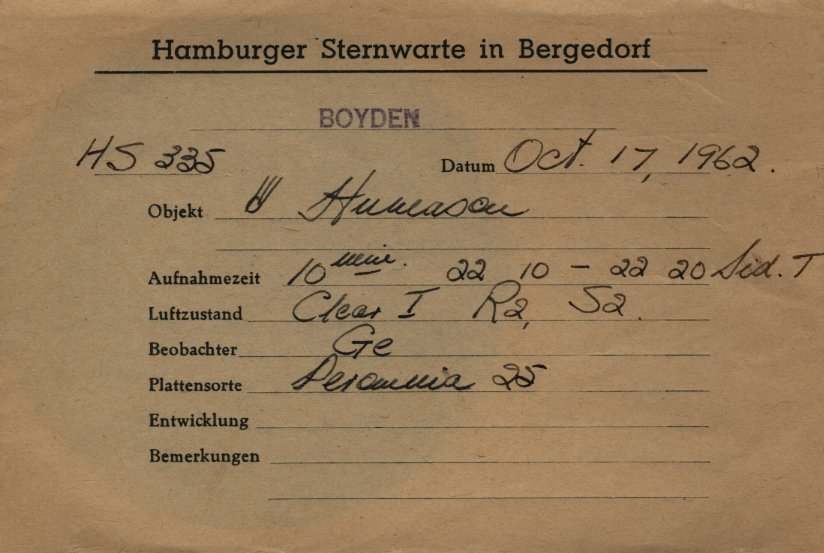 Hamburger Sternwarte in Bergedorf
BOYDEN
HS 335 Datum Oct. 17, 1962.
Objekt Humason
Aufnahmezeit 10 min. 22 10 – 22 20 Sid. T
Luftzustand Clear I R2, S2.
Beobachter Ge
Plattensorte 25
Entwicklung
Bemerkungen